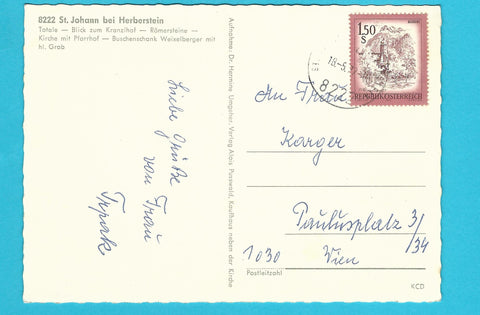 8222 St. Johann bei Herberstein
Totale — Blick zum Kranzlhof — Römersteine —
Kirche mit Pfarrhof — Buschenschank Weiselberger mit
hl. Grab
Liebe Grüße
von Frau
Trpak
Aufnahme: Dr. Hermine Umgeher, Verlag Alois Pusswald, Kaufhaus neben der Kirche
1.50
S
REPUBLIK ÖSTERREICH
18.-5.
822
An Frau
Karger
Paulusplatz 3/
/34
1030 Wien
Postleitzahl
KCD